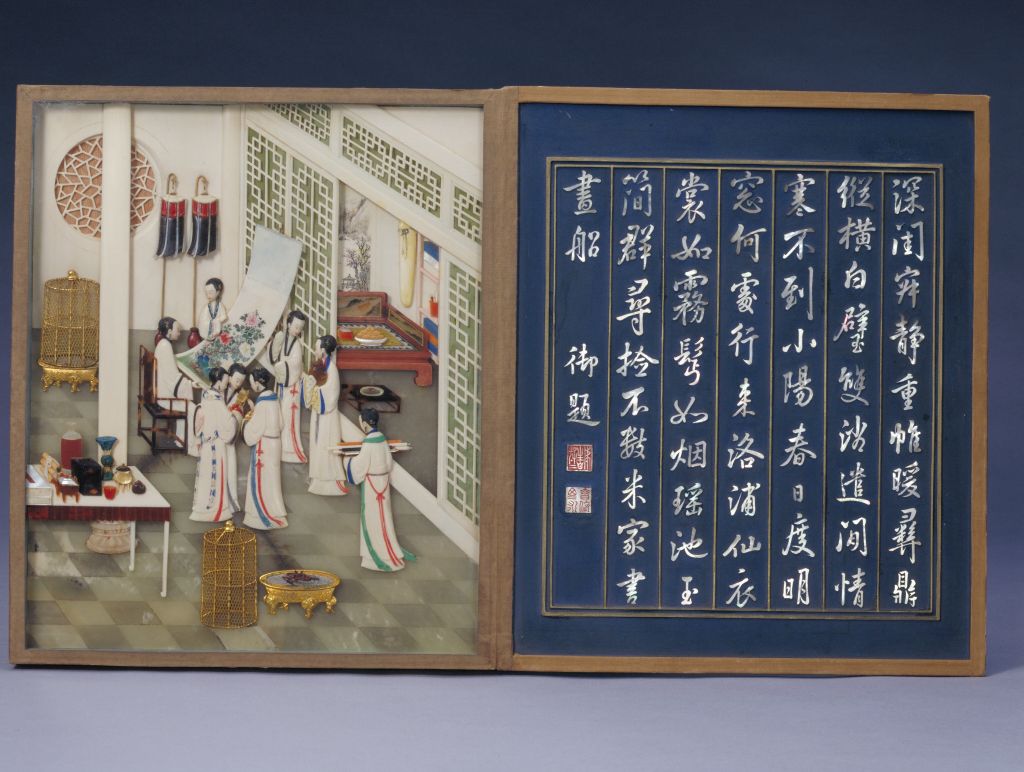 深閨寂静重帷暖彞鼎
縱橫白璧雙遣間情
寒不到小陽春日度明
窓何處行来洛浦仙衣
裳如霧髩如烟瑶池玉
簡群尋撿不數米家書
畫船 御題